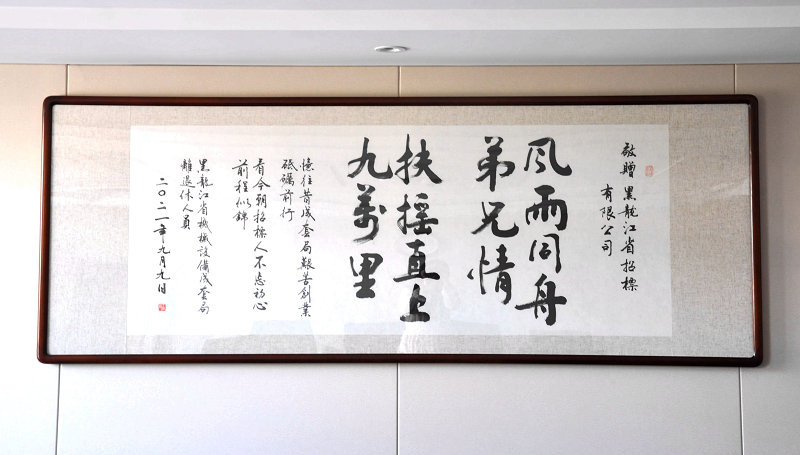 敬贈 黑龍江省招標
有限公司
风雨同舟
弟兄情
扶摇直上
九萬里
憶往昔成套局艱苦創業
砥礪前行
看今朝招標人不忘初心
前程似錦
黑龍江省機械設備成套局
離退休人員
二〇二一年九月九日